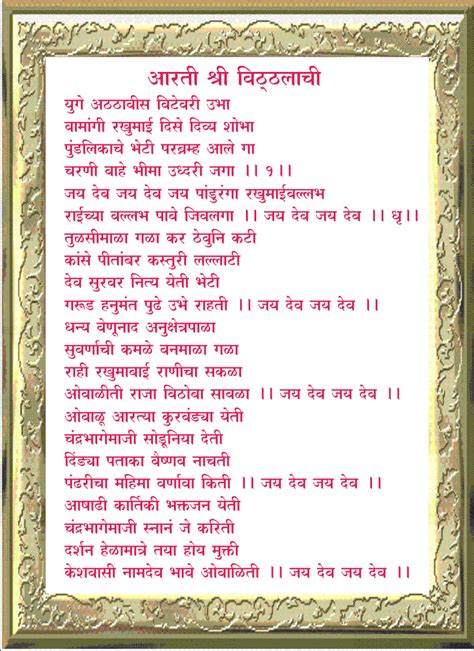 आरती श्री विठ्ठलाची
युगे अठठावीस विटेवरी उभा
वामांगी रखुमाई दिसे दिव्य शोभा
पुंडलिकाचे भेटी परब्रम्ह आले गा
चरणी वाहे भीमा उध्दरी जगा ।। १।।
जय देव जय देव जय पांडुरंगा रखुमाईवल्लभ
राईच्या वल्लभ पावे जिवलगा ।। जय देव जय देव ।। धृ।।
तुळसीमाळा गळा कर ठेवुनि कटी
कांसे पीतांबर कस्तुरी लल्लाटी
देव सुरवर नित्य येती भेटी
गरूड हनुमंत पुढे उभे राहती ।। जय देव जय देव ।।
धन्य वेणूनाद अनुक्षेत्रपाळा
सुवर्णाची कमळे वनमाळा गळा
राही रखुमाबाई राणीचा सकळा
ओवाळीती राजा विठोबा सावळा ।। जय देव जय देव ।।
ओवाळू आरत्या कुरवंड्या येती
चंद्रभागेमाजी सोडूनिया देती
दिंड्या पताका वैष्णव नाचती
पंढरीचा महिमा वर्णावा किती ।। जय देव जय देव ।।
आषाढी कार्तिकी भक्तजन येती
चंद्रभागेमाजी स्नानं जे करिती
दर्शन हेळामात्रे तया होय मुक्ती
केशवासी नामदेव भावे ओवाळिती ।। जय देव जय देव ।।